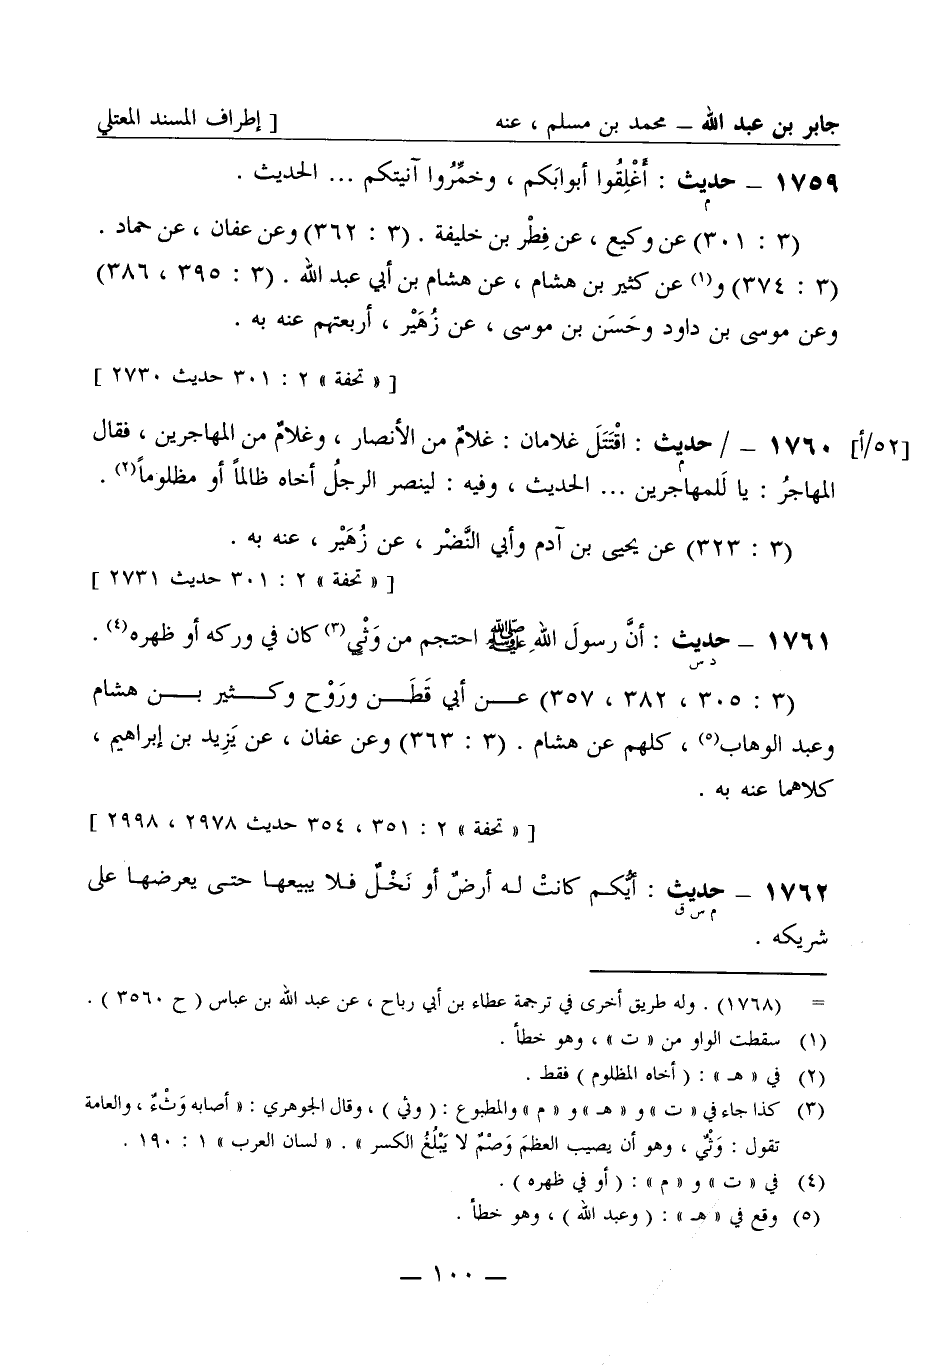 جابر بن عبد الله ــ محمد بن مسلم ، عنه [ إطراف المسند المعتلي
١٧٥٩ ــ حديث : أَغْلِقُوا أبوابَكم ، وخمِّرُوا آنيتكم ... الحديث .
م
(٣ : ٣٠١) عن وكيع ، عن فِطْر بن خليفة . (٣ : ٣٦٢) وعن عفان ، عن حماد .
(٣ : ٣٧٤) و(١) عن كثير بن هشام ، عن هشام بن أبي عبد الله . (٣ : ٣٩٥ ، ٣٨٦)
وعن موسى بن داود وحَسَن بن موسى ، عن زُهَيْر ، أربعتهم عنه به .
[ « تحفة » ٢ : ٣٠١ حديث ٢٧٣٠ ]
[٥٢/أ] ١٧٦٠ ــ / حديث : اقْتَتَلَ غلامان : غلامٌ من الأنصار ، وغلامٌ من المهاجرين ، فقال
م
المهاجرُ : يا لَلمهاجرين ... الحديث ، وفيه : لينصر الرجلُ أخاه ظالماً أو مظلوماً(٢) .
(٣ : ٣٢٣) عن يحيى بن آدم وأبي النَّضْر ، عن زُهَيْر ، عنه به .
[ « تحفة » ٢ : ٣٠١ حديث ٢٧٣١ ]
١٧٦١ ــ حديث : أنَّ رسولَ اللهِ ﷺ احتجم من وَثْيٍ(٣) كان في وركه أو ظهره(٤) .
د س
(٣ : ٣٠٥ ، ٣٨٢ ، ٣٥٧) عــن أبي قَطَــن ورَوْح وكــثير بــن هشام
وعبد الوهاب(٥) ، كلهم عن هشام . (٣ : ٣٦٣) وعن عفان ، عن يَزِيد بن إبراهيم ،
كلاهما عنه به .
[ « تحفة » ٢ : ٣٥١ ، ٣٥٤ حديث ٢٩٧٨ ، ٢٩٩٨ ]
١٧٦٢ ــ حديث : أيُّكـم كانتْ لـه أرضٌ أو نَخْـلٌ فـلا يبيعهـا حتـى يعرضهـا على
م س ق
شريكه .
= (١٧٦٨) . وله طريق أخرى في ترجمة عطاء بن أبي رباح ، عن عبد الله بن عباس ( ح ٣٥٦٠ ) .
(١) سقطت الواو من « ت » ، وهو خطأ .
(٢) في « هـ » : ( أخاه المظلوم ) فقط .
(٣) كذا جاء في « ت » و « هـ » و « م » والمطبوع : ( وثي ) ، وقال الجوهري : « أصابه وَثْءٌ ، والعامة
تقول : وَثْيٌ ، وهو أن يصيب العظمَ وَصْمٌ لا يَبْلُغُ الكسر » . « لسان العرب » ١ : ١٩٠ .
(٤) في « ت » و « م » : ( أو في ظهره ) .
(٥) وقع في « هـ » : ( وعبد الله ) ، وهو خطأ .
ــ ١٠٠ ــ